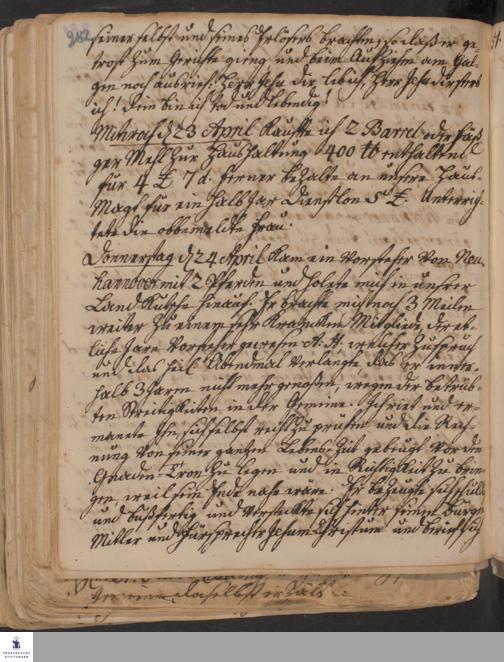 282
seiner selbst und seines Erlösers brachten, so daß er ge-
trost zum Gerichte gieng, und beim Aufziehen am Gal-
gen noch ausrief: Herr Jesu dir lebe ich, Herr Jesu dir sterbe
ich! dein bin ich tod und lebendig!
Mitwoch d 23 April kaufte ich 2 Barrel oder Fäß-
ger Mehl zur Haushaltung 400 lb enthaltend
für 4 £ 7 d. ferner bezalte an unsere Haus-
Magt für ein halb Jar Dienstlon 5 £. Unterrich-
tete die obbemeldte Frau.
Donnerstag d 24 April kam ein Vorsteher von Neu-
hannover mit 2 Pferden und holete mich in unsrer
Land Kutsche hinauf. Er brachte mich noch 3 Meilen
weiter zu einem sehr krancken Mitgliede, der et-
liche Jare Vorsteher gewesen A. H. welcher Zuspruch
und das heil. Abendmal verlangte, das er inner-
halb 3 Jaren nicht mehr genoßen, wegen der betrüb-
ten Streitigkeiten in der Gemine. Ich riet und er-
manete Ihn, sich selbst recht zu prüfen und die Rech-
nung von seiner ganzen Lebens-Zeit gebeugt vor den
Gnaden-Tron zu legen und in Richtigkeit zu brin-
gen, weil sein Ende nahe wäre. Er bezeugte sich
und bußfertig und versteckte sich hinter seinen Bürgen
Mitler und Fürsprecher Jesum Christum und
FRANCKESCHE
STIFTUNGEN